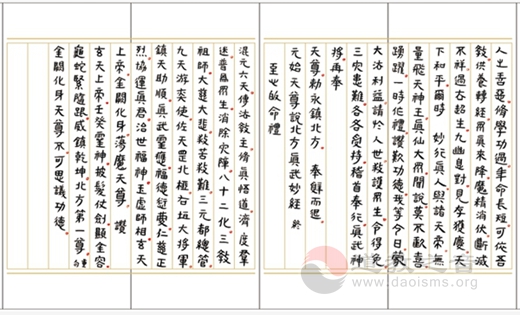 人之善惡修學功過年命長短可依吾
教供養轉經眾真來降魔精消伏斷滅
不祥過去超生九幽息對見存獲慶天
下和平爾時 妙行真人與諸天帝無
量飛天神王真仙大眾聞說莫不歡喜
踴躍一時作禮讚歎功德我等今日蒙
大法利益請於人世救護眾生令得免
三災患難各各受持稽首奉行真武神
將再奉
天尊勅永鎮北方 奉辭而退
元始天尊說北方真武妙經 終
至心皈命禮
混元六天傳法教主修真悟道濟度群
迷普為眾生消除災障八十二化三教
祖師大慈大悲救苦救難三元都總管
九天游奕使佐天罡北極右垣大將軍
鎮天助順真武靈應福德衍慶仁慈正
烈協運真君治世福神玉虛師相玄天
上帝金闕化身蕩魔天尊 讚
玄天上帝壬癸靈神披髮仗劍顯金容
龜蛇緊隨跟威鎮乾坤北方第一尊 重句
金闕化身天尊不可思議功德
道教之音
www.daoisms.org